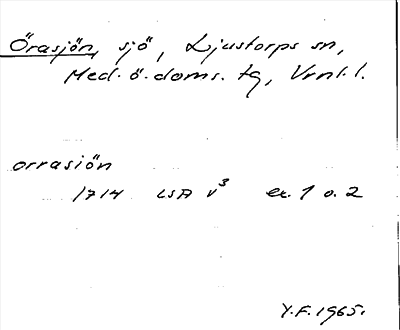 Örasjön, sjö, Ljustorps sn,
Med. ö. doms. tg, Vrnl. l.
orrasiön
1714 LSA v³ ex. 1 o. 2
Y.F. 1965.